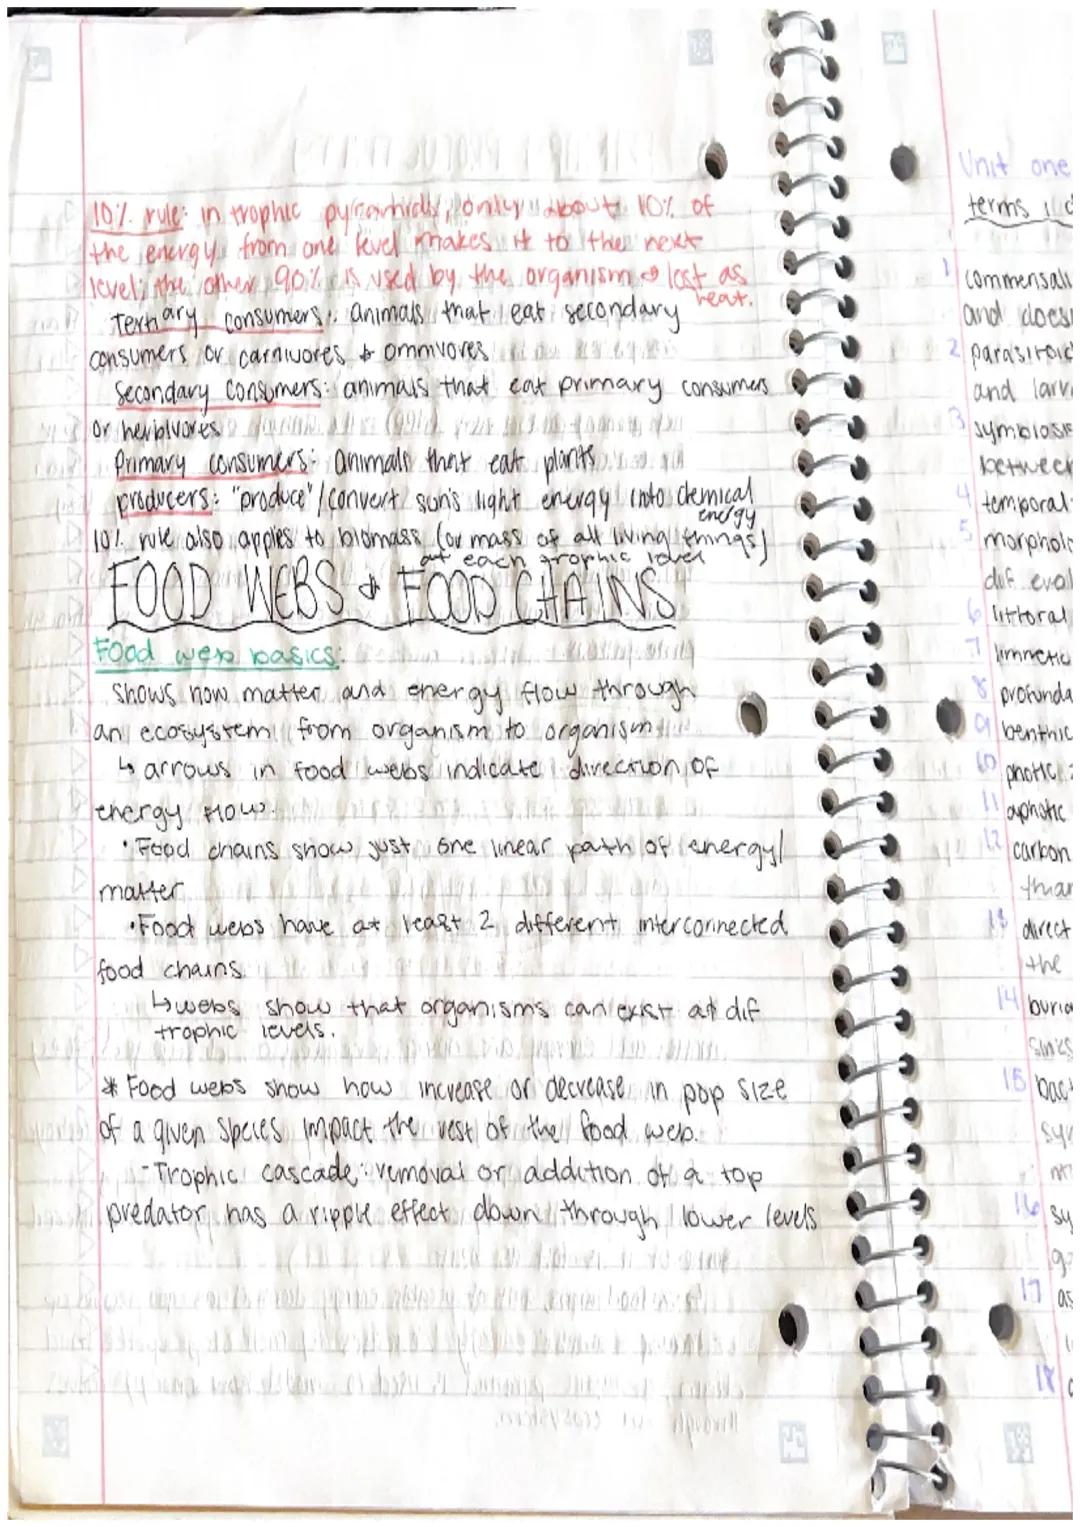 10% rule: in trophic pyramids, only about 10% of
the energy from one level makes it to the next
level; the other 90% is used by the organism & lost as
heat.
Tertiary consumers: animals that eat secondary
consumers or carnivores & omnivores
Secondary Consumers: animals that eat primary consumers
or herbivores
Primary consumers: animals that eat plants
producers: "produce"/convert sun's light energy into chemical
energy
10% rule also applies to biomass (or mass of all living things)
at each trophic level
FOOD WEBS & FOOD CHAINS
Food web basics:
shows how matter and energy flow through
an ecosystem from organism to organism
↳ arrows in food webs indicate direction of
energy flow.
• Food chains show just one linear path of energy/
matter
• Food webs have at least 2 different interconnected
food chains
↳ webs show that organisms can exist at dif
trophic levels.
* Food webs show how increase or decrease in pop size
of a given species impact the rest of the food web.
- Trophic cascade: removal or addition of a top
predator has a ripple effect down through lower levels
Unit one
terms
1 commensali
and does
2 parasitoid
and larv
3 symbiosis
between
4 temporal
5 morpholo
dif. evol
6 littoral
7 limnetic
8 profunda
9 benthic
10 photic
11 aphotic
12 carbon
than
13 direct
the
14 buria
sinks
15 bac
sy
16 sy
17 as
18